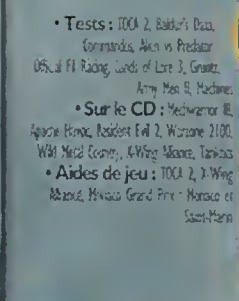 • Tests : TOCA 2, Baldur's Gate,
Commandos, Alien vs Predator
Official F1 Racing, Lands of Lore 3, Gruntz,
Army Men II, Machines
• Sur le CD : Mechwarrior III,
Apache Havoc, Resident Evil 2, Warzone 2100,
Wild Metal Country, X-Wing Alliance,
• Aides de jeu : TOCA 2, X-Wing
Alliance, Monaco Grand Prix : Monaco et
Saint-Marin